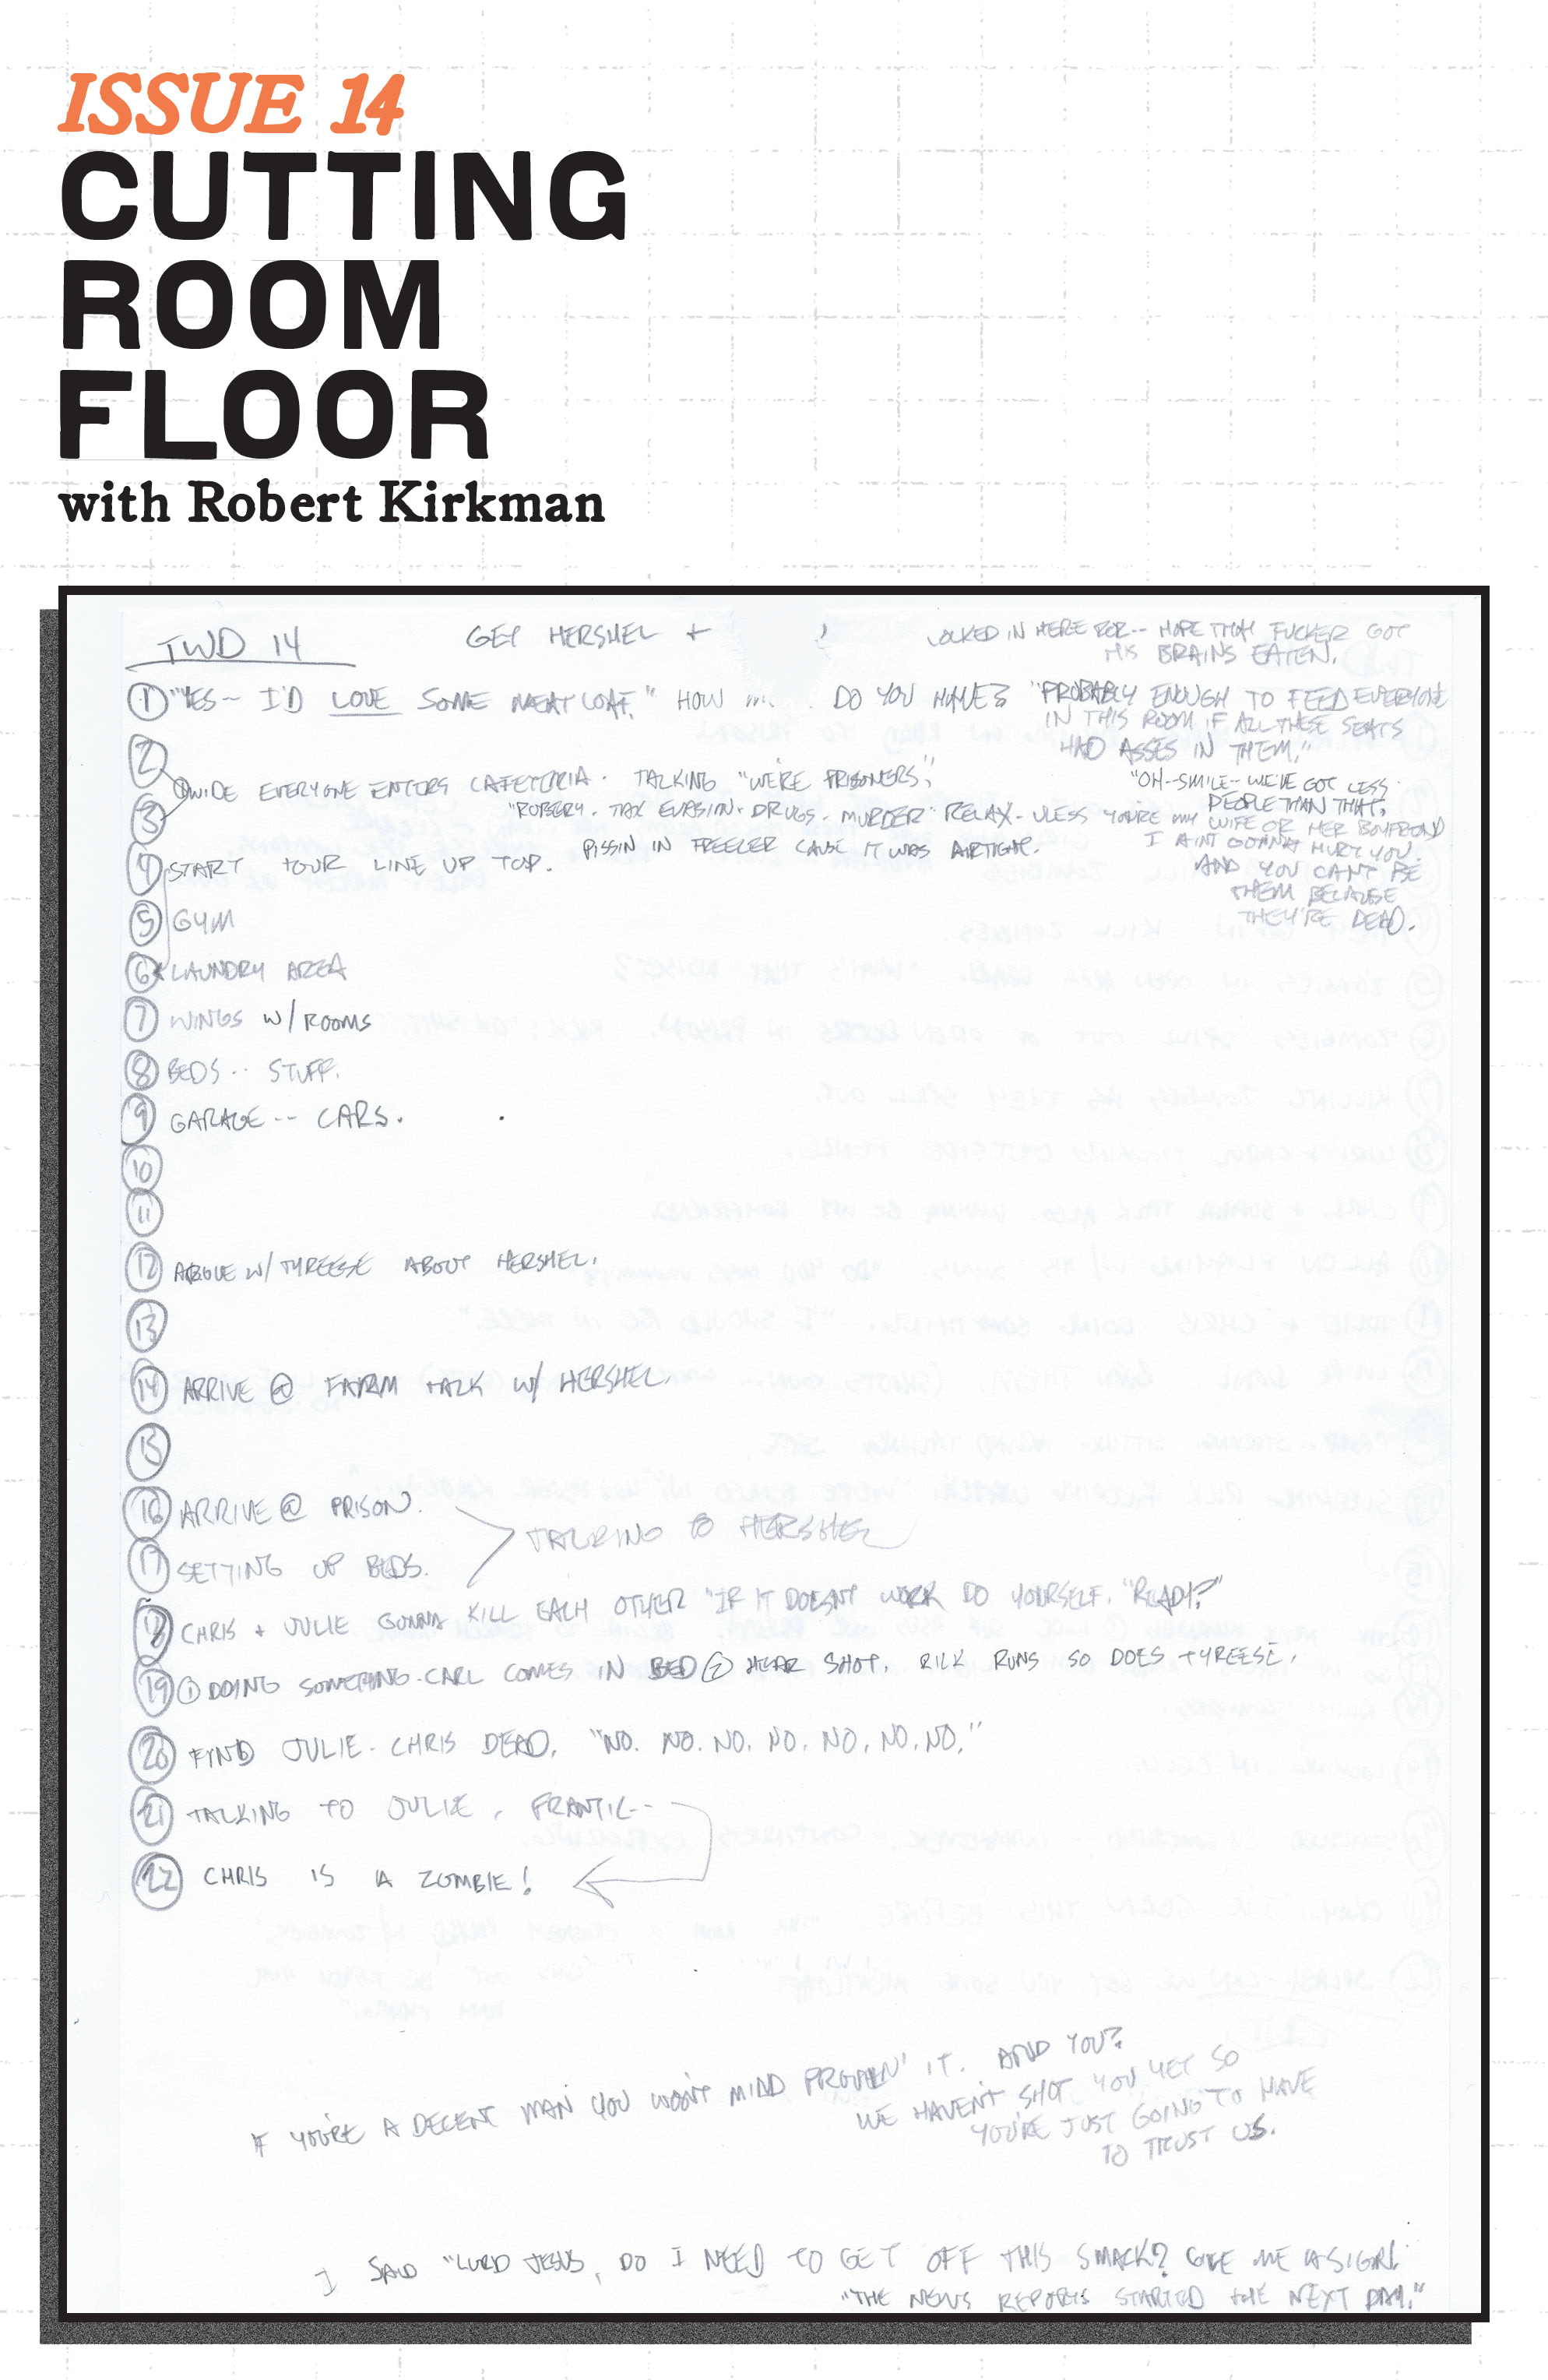 ISSUE 14
CUTTING
ROOM
FLOOR
with Robert Kirkman
TWD 14
GET HERSHEL +
LOCKED IN HERE FOR-- HOPE THAT FUCKER GOT
HIS BRAINS EATEN.
1 "YES-- I'D LOVE SOME MEATLOAF." HOW DO YOU HAVE? "PROBABLY ENOUGH TO FEED EVERYONE
IN THIS ROOM IF ALL THESE SEATS
HAD ASSES IN THEM."
2
WIDE EVERYONE ENTERS CAFETERIA. TALKING "WE'RE PRISONERS."
"OH--SMILE--WE'VE GOT LESS
PEOPLE THAN THAT.
3
"ROBERY. TAX EVASION. DRUGS. MURDER" RELAX. UNLESS YOU'RE MY WIFE OR HER BOYFRIEND
I AINT GONNA HURT YOU.
AND YOU CAN'T BE
THEM BECAUSE
THEY'RE DEAD.
4 START TOUR LINE UP TOP. PISSIN IN FREEZER CAUSE IT WAS AIRTIGHT.
5 GYM
6 LAUNDRY AREA
7 WINGS W/ROOMS
8 BEDS.. STUFF.
9 GARAGE-- CARS.
10
11
12 ARGUE W/ TYREESE ABOUT HERSHEL.
13
14 ARRIVE @ FARM TALK W/ HERSHEL.
15
16 ARRIVE @ PRISON.
TALKING TO HERSHEL
17 SETTING UP BEDS.
18 CHRIS + JULIE GONNA KILL EACH OTHER "IF IT DOESN'T WORK DO YOURSELF. "READY?"
19 1 DOING SOMETHING-CARL COMES IN BED 2 HEAR SHOT. RICK RUNS SO DOES TYREESE.
20 FIND JULIE-CHRIS DEAD. "NO. NO. NO. NO, NO, NO, NO."
21 TALKING TO JULIE, FRANTIC--
22 CHRIS IS A ZOMBIE!
IF YOU'RE A DECENT MAN YOU WON'T MIND PROVEN' IT. AND YOU?
WE HAVEN'T SHOT YOU YET SO
YOU'RE JUST GOING TO HAVE
TO TRUST US.
I SAID "LORD JESUS, DO I NEED TO GET OFF THIS SMACK? GIVE ME A SIGN.
"THE NEWS REPORTS STARTED THE NEXT DAY."